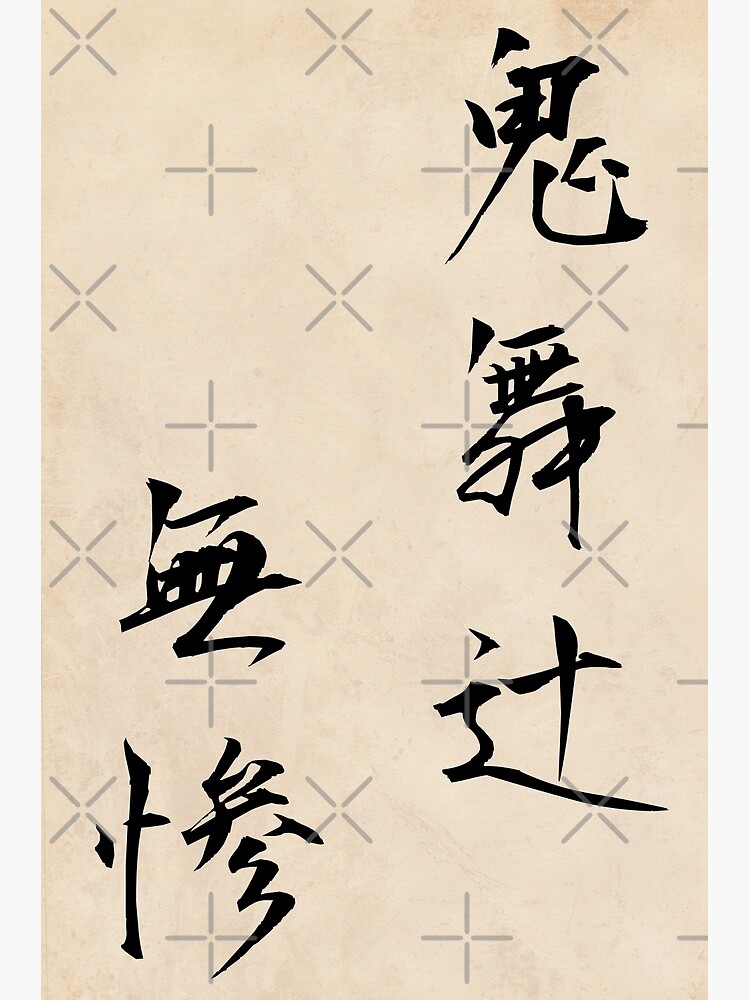 鬼舞辻
無惨